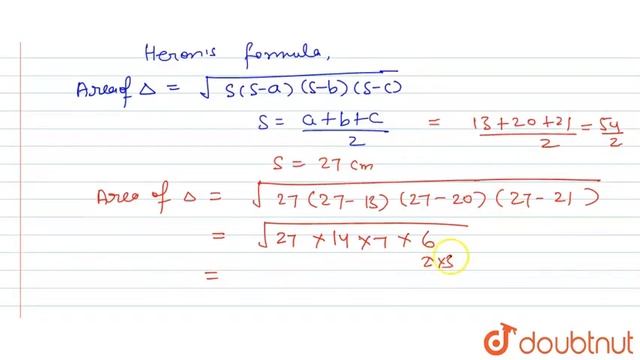 Heron's formula,
Area of Δ = √S(S-a)(S-b)(S-c)
S = a+b+c/2 = 13+20+21/2 = 54/2
S = 27 cm
Area of Δ = √27(27-13)(27-20)(27-21)
= √27×14×7×6
2×3
=
doubtnut